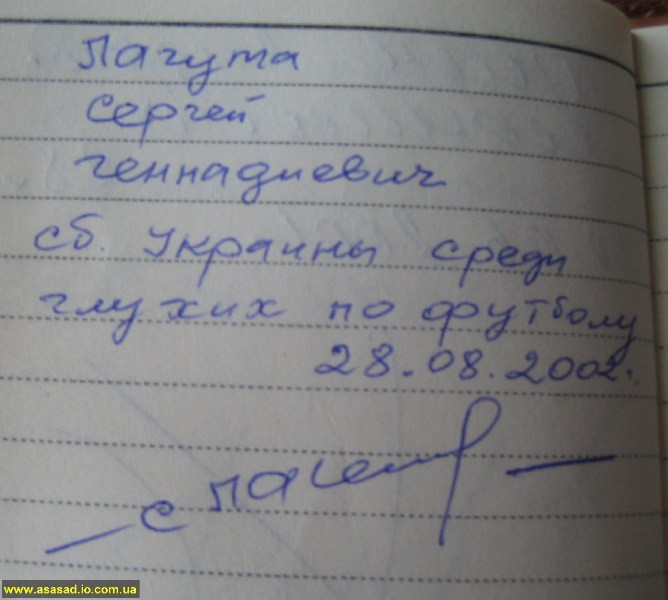 Лагута
Сергей
Геннадиевич
сб. Украины среди
глухих по футболу
28.08.2002.
www.asasad.io.com.ua